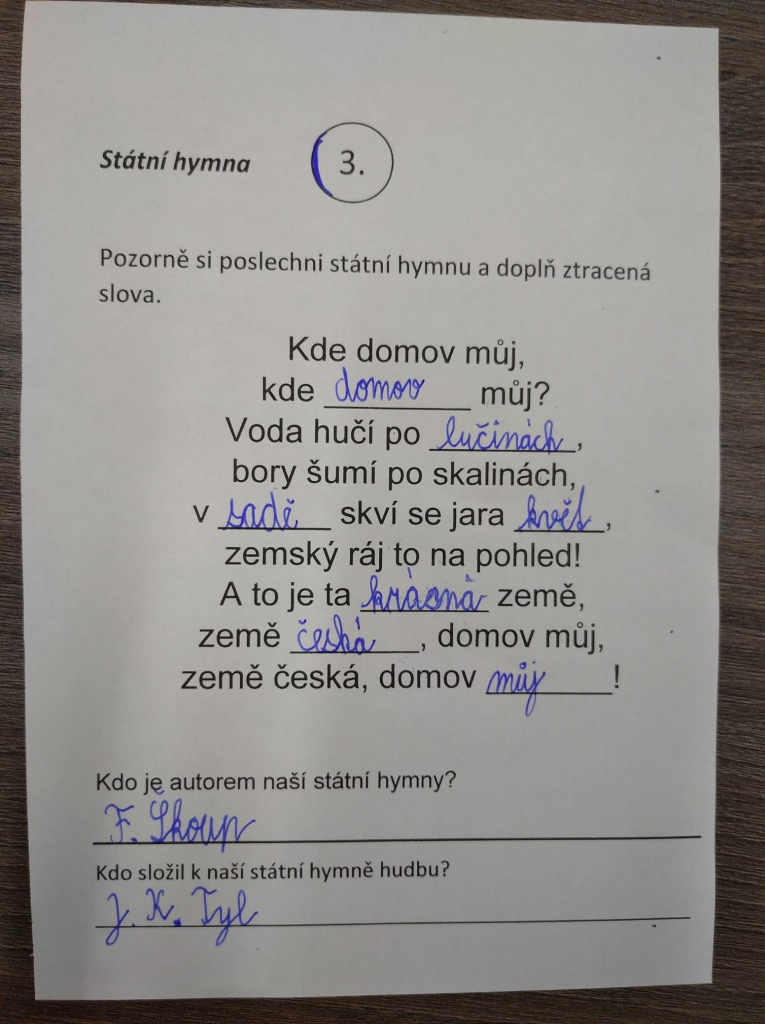 Státní hymna 3.
Pozorně si poslechni státní hymnu a doplň ztracená
slova.
Kde domov můj,
kde domov můj?
Voda hučí po lučinách,
bory šumí po skalinách,
v sadě skví se jara květ,
zemský ráj to na pohled!
A to je ta krásná země,
země česká, domov můj,
země česká, domov můj!
Kdo je autorem naší státní hymny?
F. Škoup
Kdo složil k naší státní hymně hudbu?
J. K. Tyl